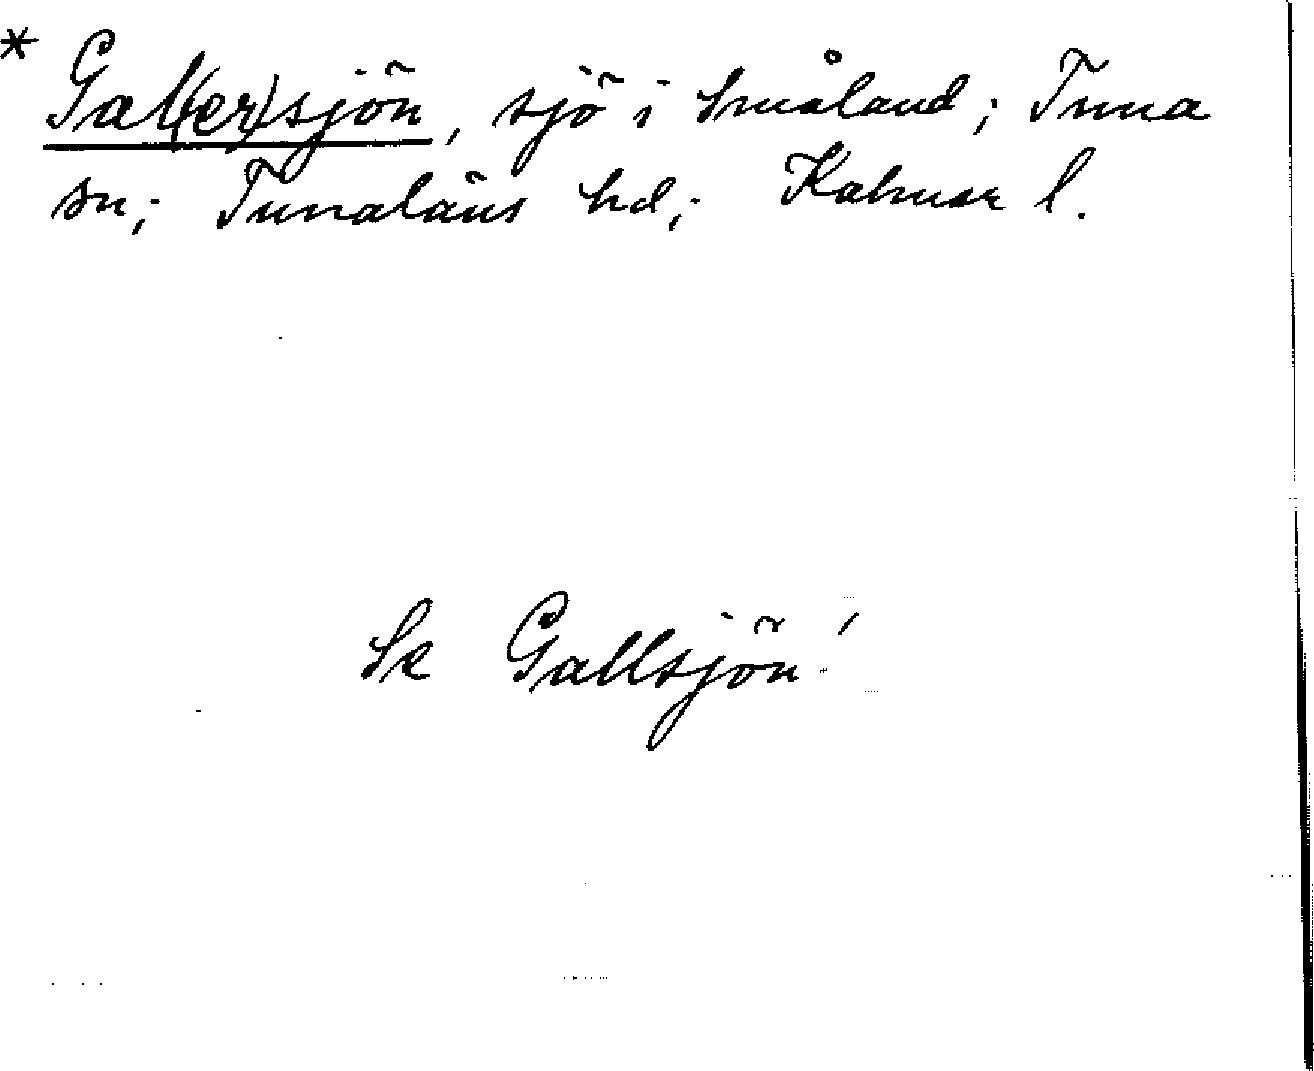 * Gal(er)sjön, sjö i Småland; Tuna
sn; Tunaläns hd; Kalmar l.
Se Gallsjön!